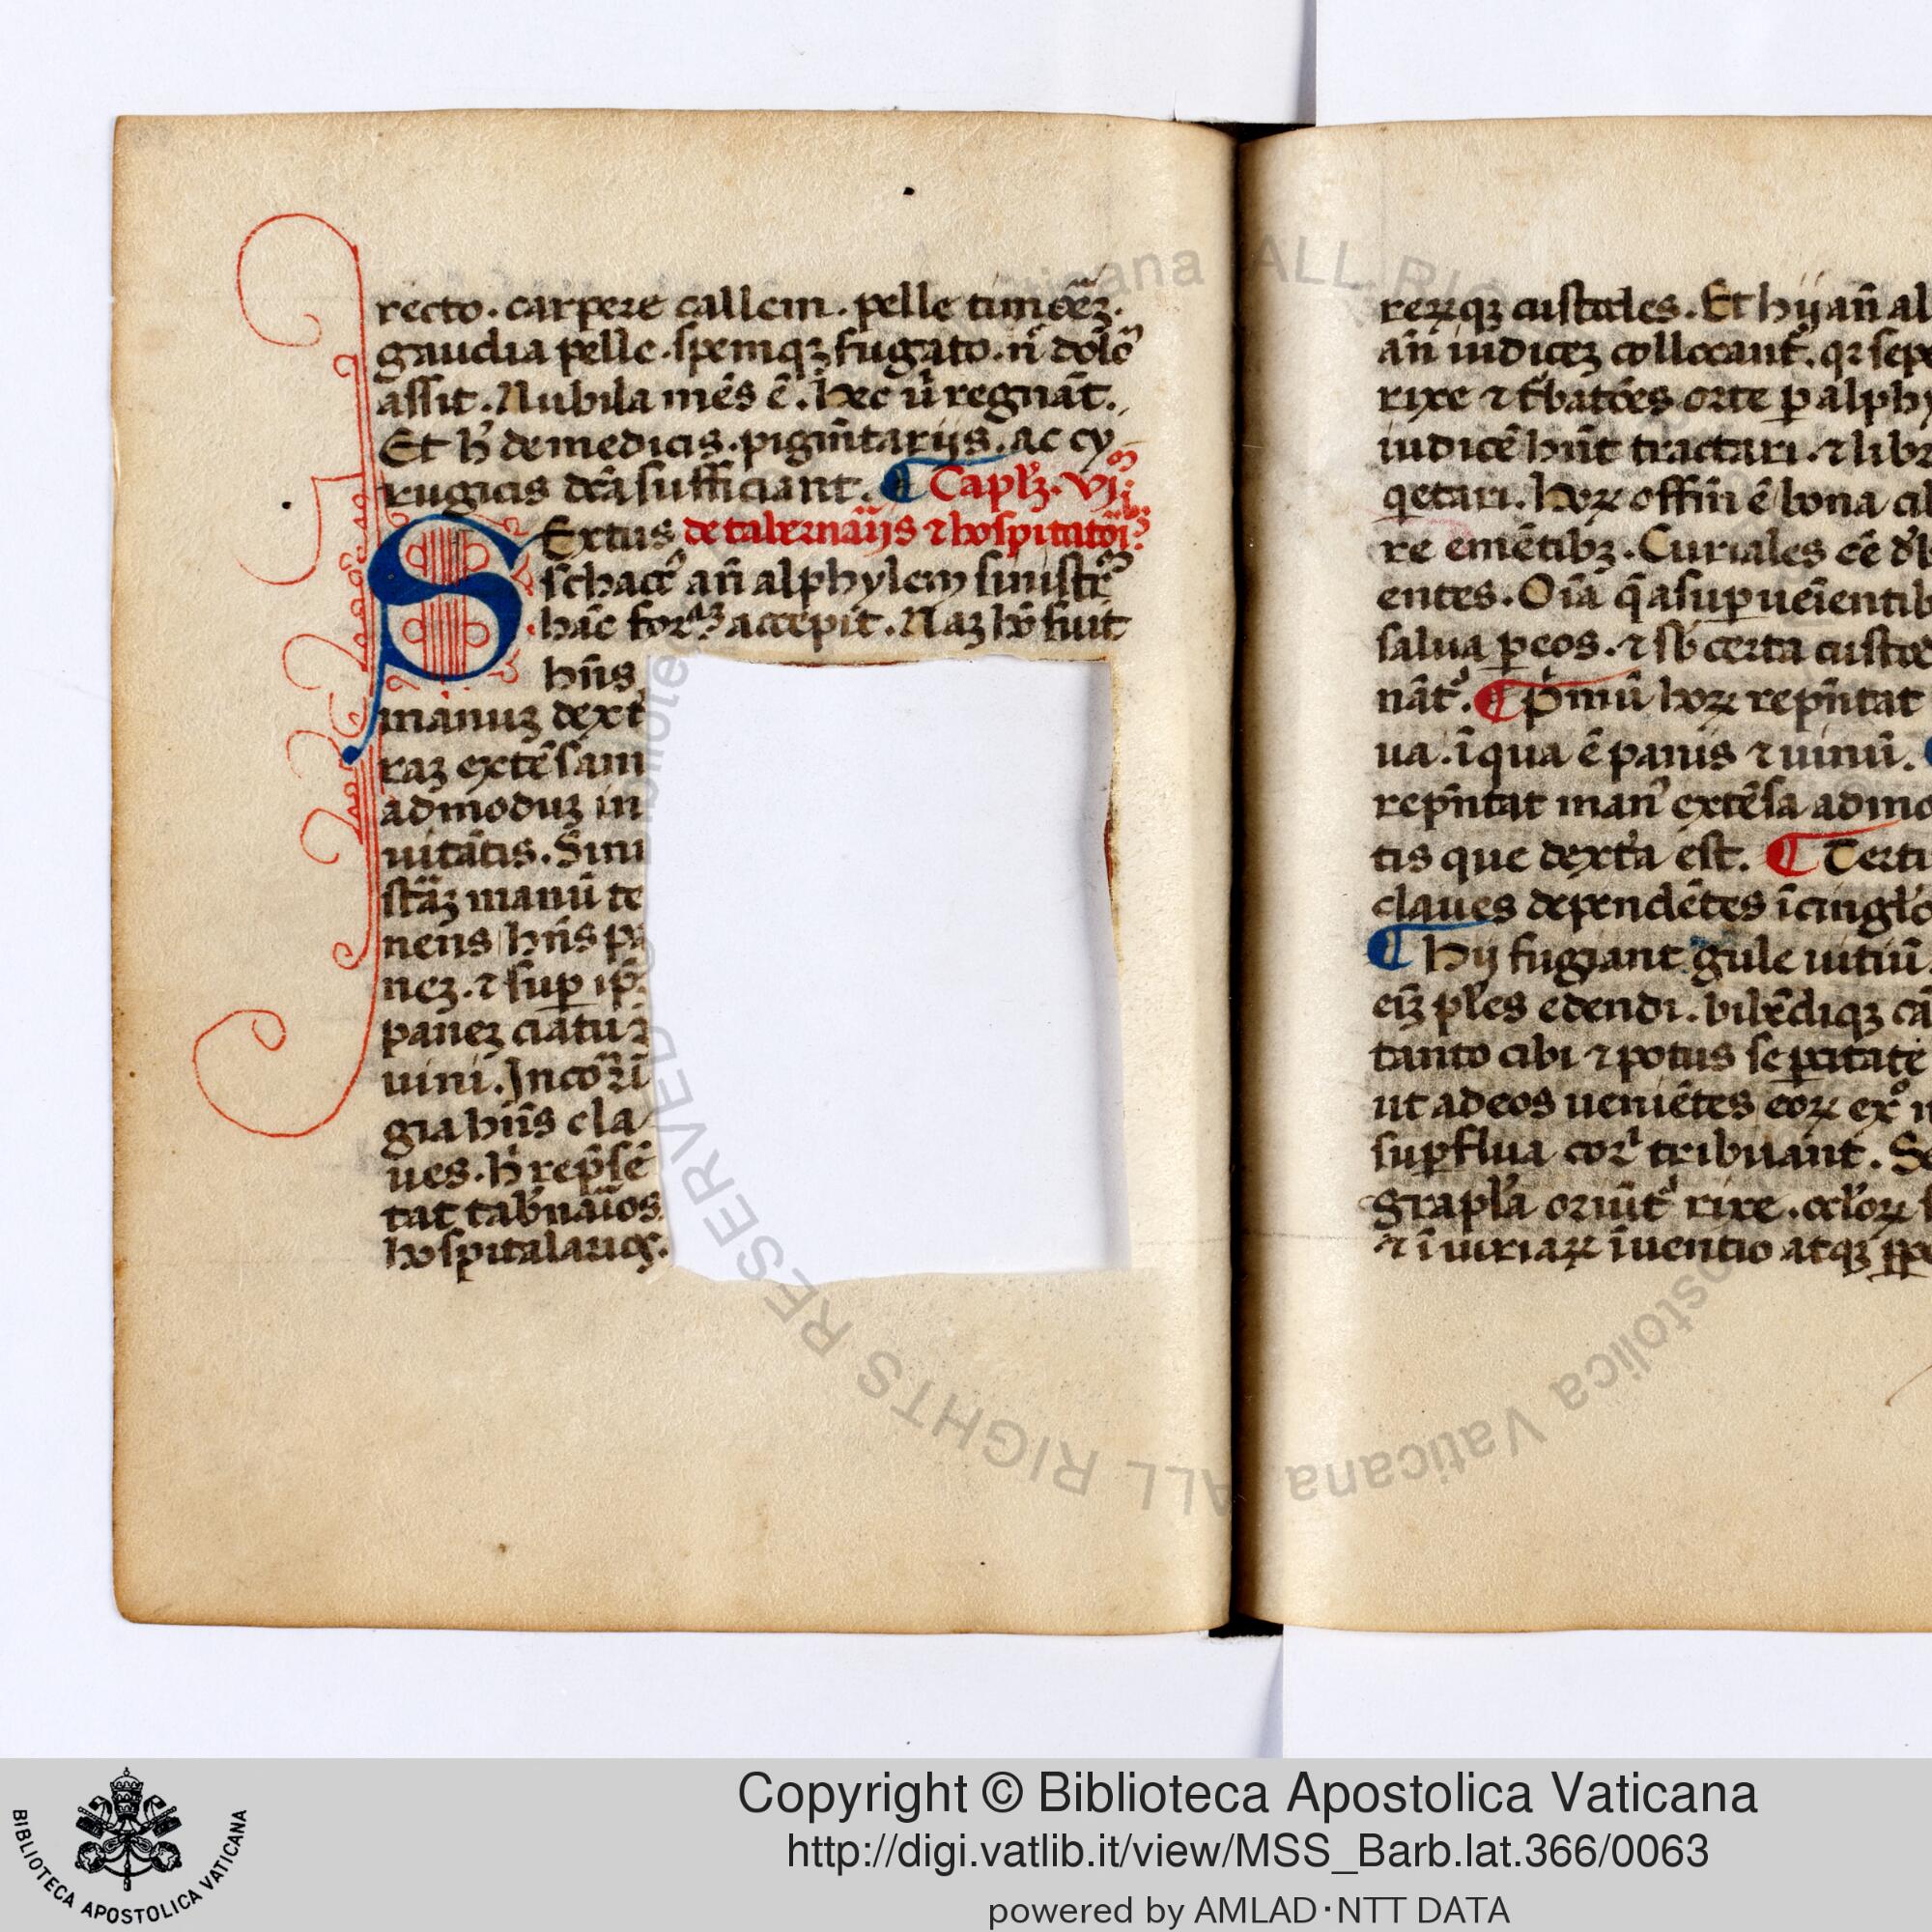 recto. carpere callem. pelle timoẽꝫ.
gaudia pelle. spemqꝫ fugato. n̄ dolor
assit. Nubila mēs ē. hec ū regnāt.
Et h̄ de medicis. pigm̄tarijs. ac cy
rugicis dc̄a sufficiant. ¶ Caplꝫ. vj.
SExtus de tabernāijs ⁊ hospitatōi
schacc̄ an̄ alphylem sinistr̄
hāc formaꝫ accepit. Naꝫ hō fuit
hn̄s
manuꝫ dext
raꝫ extēsam
admoduꝫ in
uitātis. Sini
str̄aꝫ manū te
nens hn̄s pa
neꝫ. ⁊ suꝑ ip̄
paneꝫ ciatū
uini. In corri
gia hn̄s cla
ues. h̄ rep̄sē
tat tab̄naīos
hospitalarios.
rerꝫqꝫ custodes. Et hij an̄ al
an̄ iudiceꝫ collocant̄. qꝛ sepe
rixe ⁊ t̄batōes orte ꝑ alphy
iudicē hn̄t tractari. ⁊ libr
qetari. hoꝝ offm̄ ē bona ci
re emētibꝫ. Curiales eē d
entes. Oīa q̄ a suꝑueīentib
salua ꝑ eos. ⁊ sb̄ certa custo
nāt̄. ¶ P̄mū hoꝝ rep̄ntat
ua. ī qua ē panis ⁊ uinū. ¶
rep̄ntat man̄ extēsa admo
tis que dext̄a est. ¶ Terti
claues dependētes ī cingl̄o
¶ hij fugiant gule uitiū
eī pl̄es edendi. bibēdiqꝫ cā
tanto cibi ⁊ potus se ꝑcitate
ut ad eos ueniētes eoꝝ ex̊ n
suꝑflua cor tribuant. Se
Grapl̄a oriūt̄ rixe.
⁊ ī iuriaꝝ īuentio atqꝫ
Copyright © Biblioteca Apostolica Vaticana
http://digi.vatlib.it/view/MSS_Barb.lat.366/0063
powered by AMLAD·NTT DATA
BIBLIOTECA APOSTOLICA VATICANA